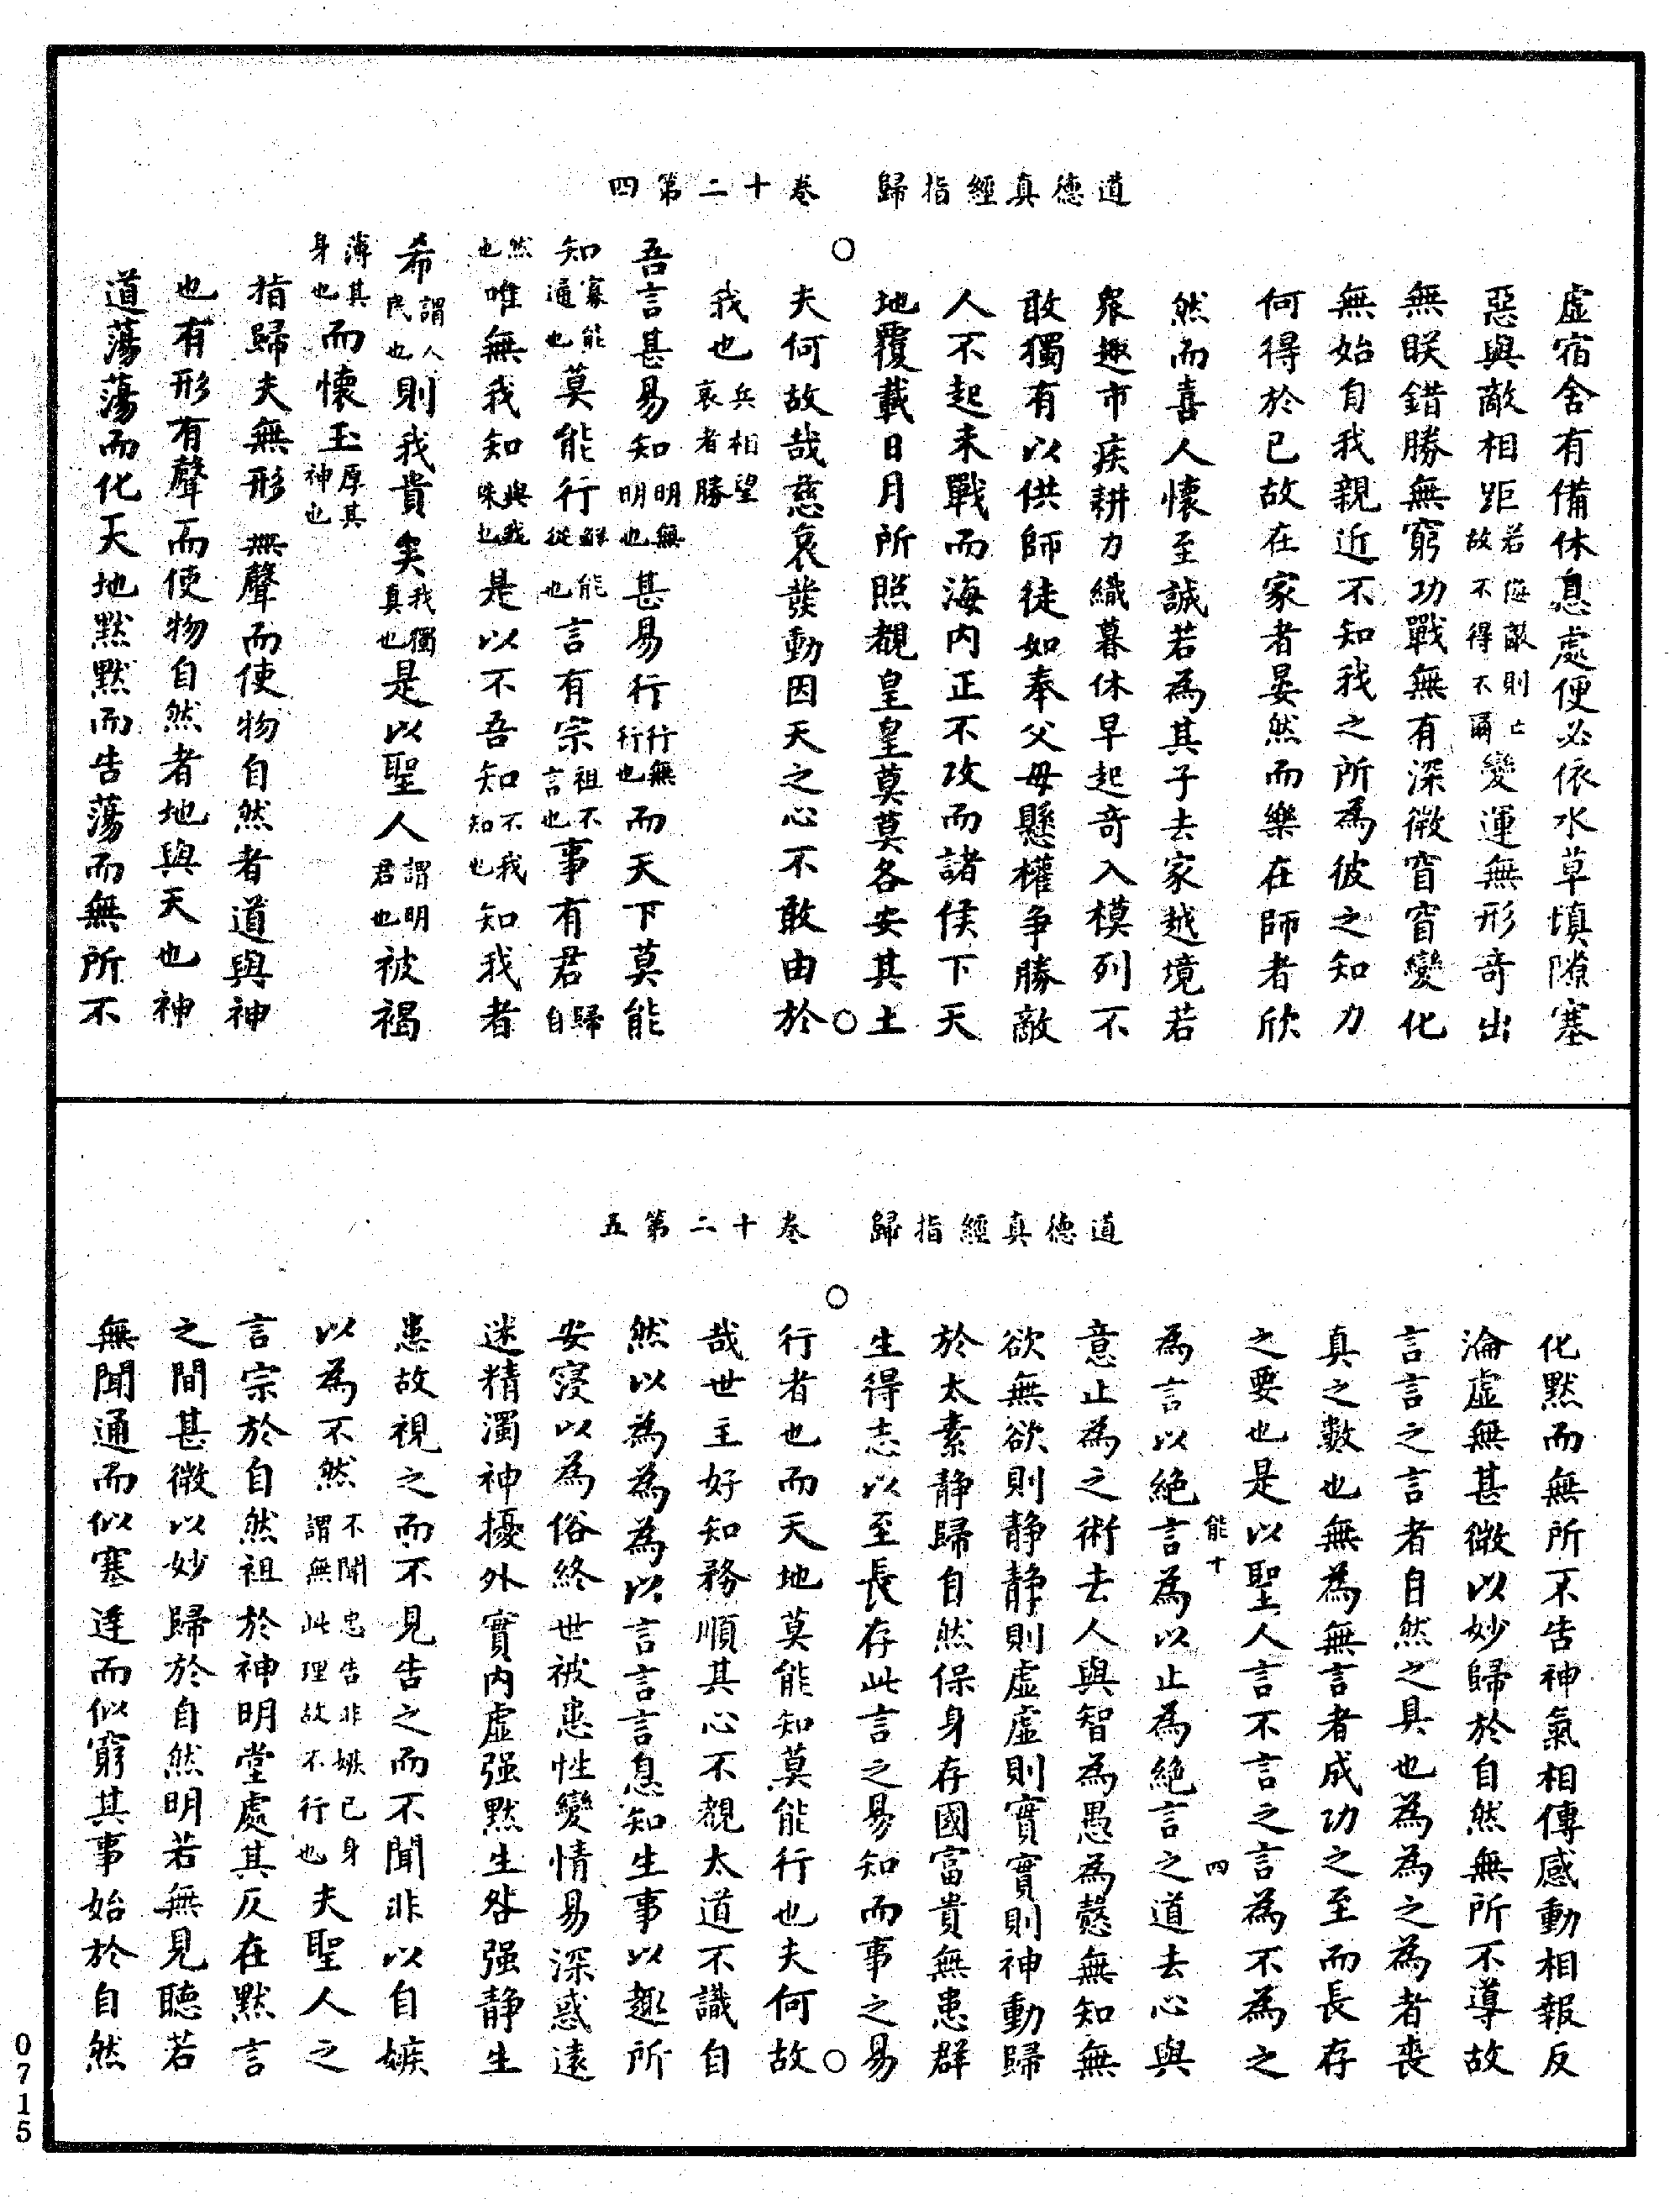 道德真經指歸　卷十二第四
虛宿舍有備休息處便必依水草填隙塞
惡與敵相距若侮敵則亡故不得不爾變運無形奇出
無朕錯勝無窮功戰無有深微窅窅變化
無始自我親近不知我之所為彼之知力
何得於已故在家者晏然而樂在師者欣
然而喜人懷至誠若為其子去家越境若
衆趣市疾耕力織暮休早起奇入模列不
敢獨有以供師徒如奉父母懸權爭勝敵
人不起未戰而海內正不攻而諸侯下天
地覆載日月所照覩皇皇莫莫各安其土
○　○
夫何故哉慈哀發動因天之心不敢由於
我也兵相望哀者勝
吾言甚易知明無明也甚易行行無行也而天下莫能
知寡能通也莫能行能解能從也言有宗祖不言也事有君歸自
然也唯無我知與我殊也是以不吾知不我知也知我者
希謂人民也則我貴矣我獨真也是以聖人謂明君也被褐
薄其身也而懷玉厚其神也
指歸夫無形無聲而使物自然者道與神
也有形有聲而使物自然者地與天也神
道蕩蕩而化天地默默而告蕩而無所不
道德真經指歸　卷十二第五
化默而無所不告神氣相傳感動相報反
淪虛無甚微以妙歸於自然無所不導故
言言之言者自然之具也為為之為者喪
真之數也無為無言者成功之至而長存
之要也是以聖人言不言之言為不為之
能十　四
為言以絕言為以止為絕言之道去心與
意止為之術去人與智為愚為慤無知無
欲無欲則静静則虛虛則實實則神動歸
於太素静歸自然保身存國富貴無患群
生得志以至長存此言之易知而事之易
○　○
行者也而天地莫能知莫能行也夫何故
哉世主好知務順其心不覩太道不識自
然以為為為以言言言息知生事以趣所
安寖以為俗終世被患性變情易深惑遠
迷精濁神擾外實內虛强默生咎强静生
患故視之而不見告之而不聞非以自嫉
以為不然不聞忠告非嫉已身謂無此理故不行也夫聖人之
言宗於自然祖於神明堂處其仄在默言
之間甚微以妙歸於自然明若無見聽若
無聞通而似塞達而似窮其事始於自然
0715